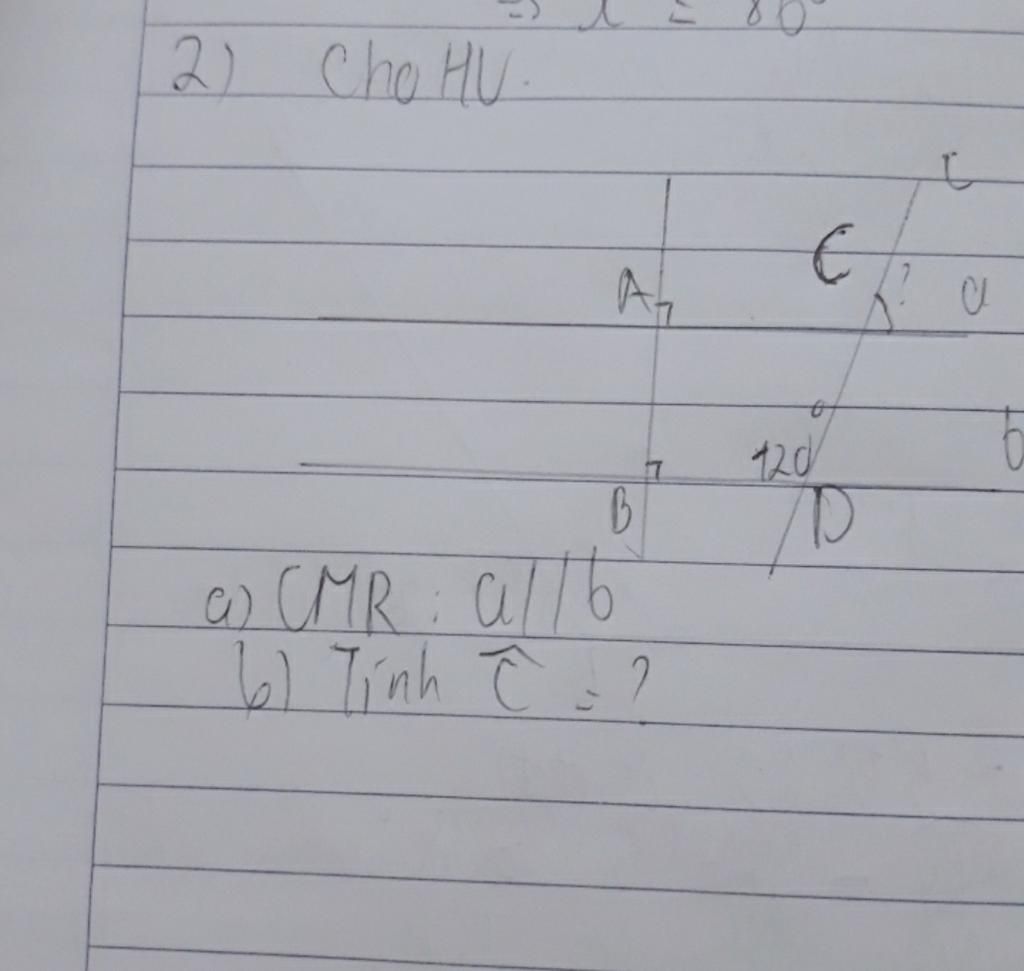 2) Cho HV.
c
C
A ? a
120°
b
B D
a) CMR : a//b
b) Tính Ĉ = ?